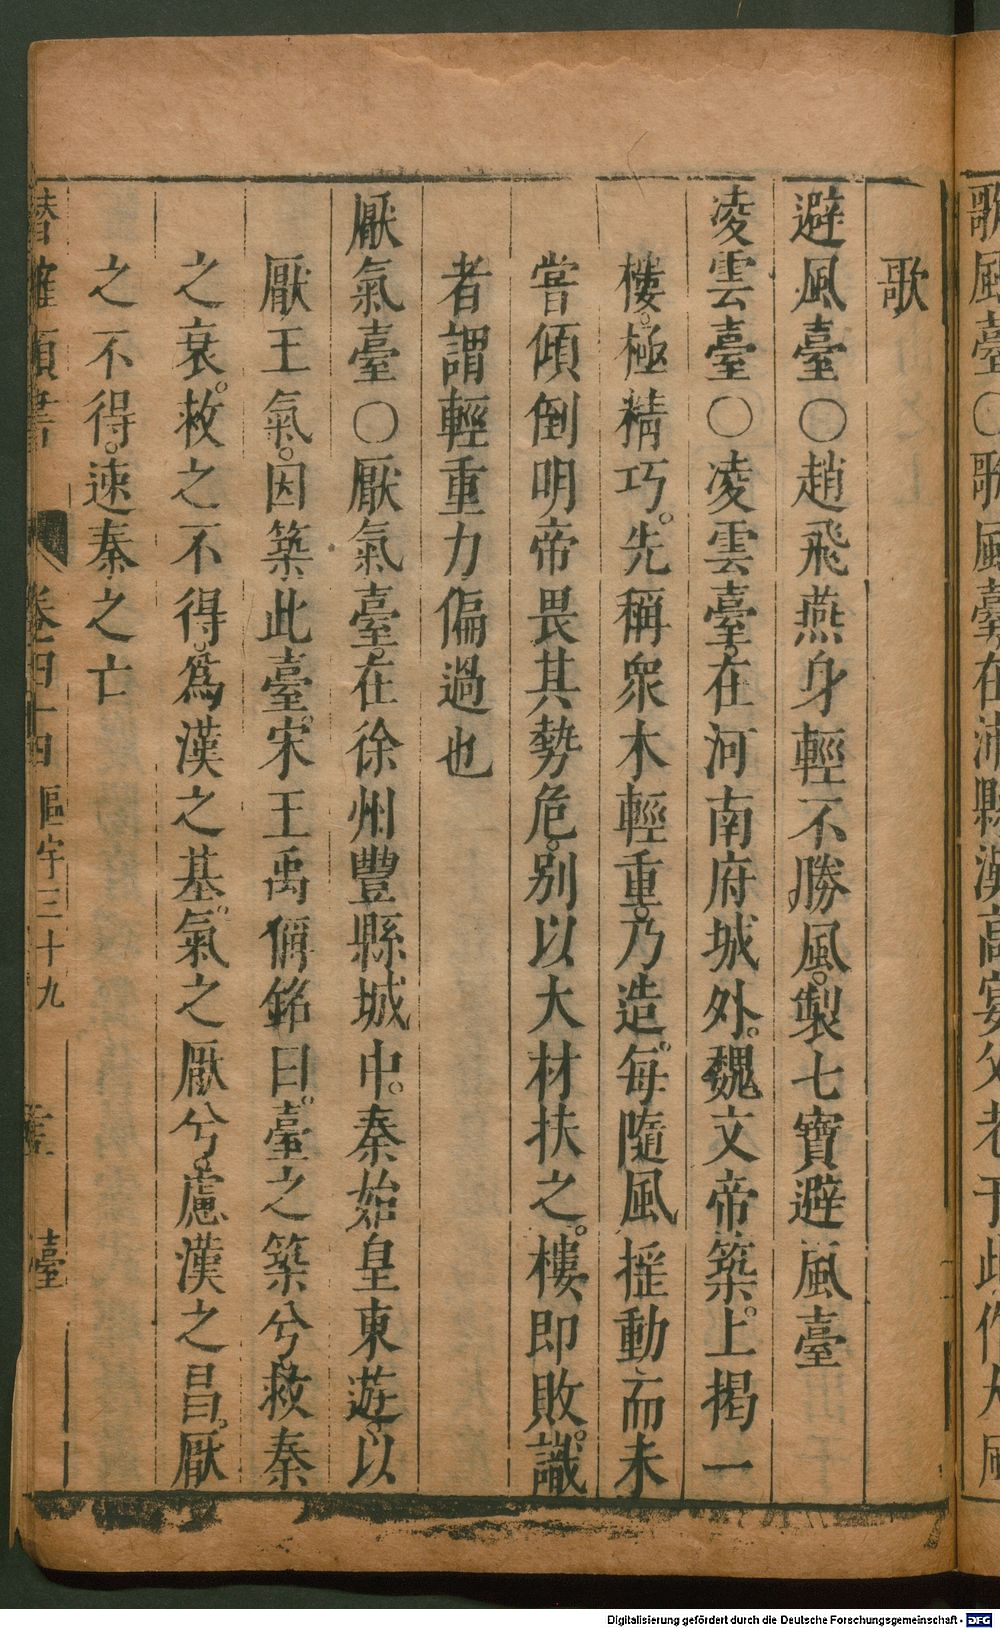 歌風臺○歌風臺在沛縣漢高宴父老于此作大風
歌
避風臺○趙飛燕身輕不勝風。製七寶避風臺
凌雲臺○凌雲臺。在河南府城外。魏文帝築。上揭一
樓。極精巧。先稱衆木輕重。乃造。每隨風揺動。而未
甞傾倒明帝畏其勢危。别以大材扶之。樓即敗。識
者謂輕重力偏過也
厭氣臺○厭氣臺。在徐州豐縣城中。秦始皇東遊。以
厭王氣。因築此臺。宋王禹偁銘曰。臺之築兮。救秦
之衰。救之不得。爲漢之基。氣之厭兮。慮漢之昌。厭
之不得。速秦之亡
潛確類書 卷四十四 區宇三十九 臺
Digitalisierung gefördert durch die Deutsche Forschungsgemeinschaft - DFG